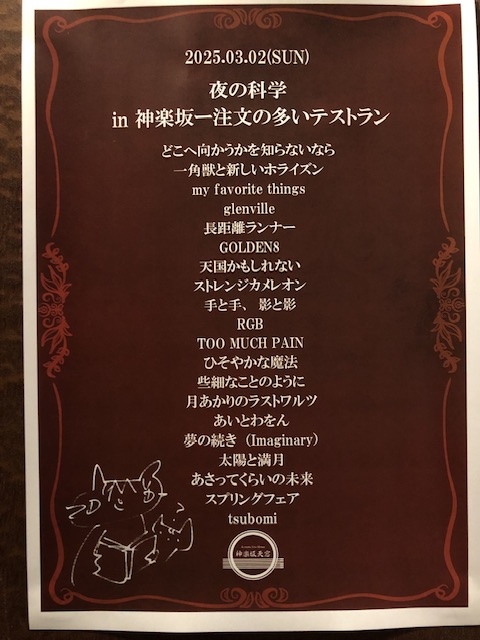 2025.03.02(SUN)
夜の科学
in 神楽坂ー注文の多いテストラン
どこへ向かうかを知らないなら
一角獣と新しいホライズン
my favorite things
glenville
長距離ランナー
GOLDEN8
天国かもしれない
ストレンジカメレオン
手と手、影と影
RGB
TOO MUCH PAIN
ひそやかな魔法
些細なことのように
月あかりのラストワルツ
あいとわをん
夢の続き（Imaginary）
太陽と満月
あさってくらいの未来
スプリングフェア
tsubomi